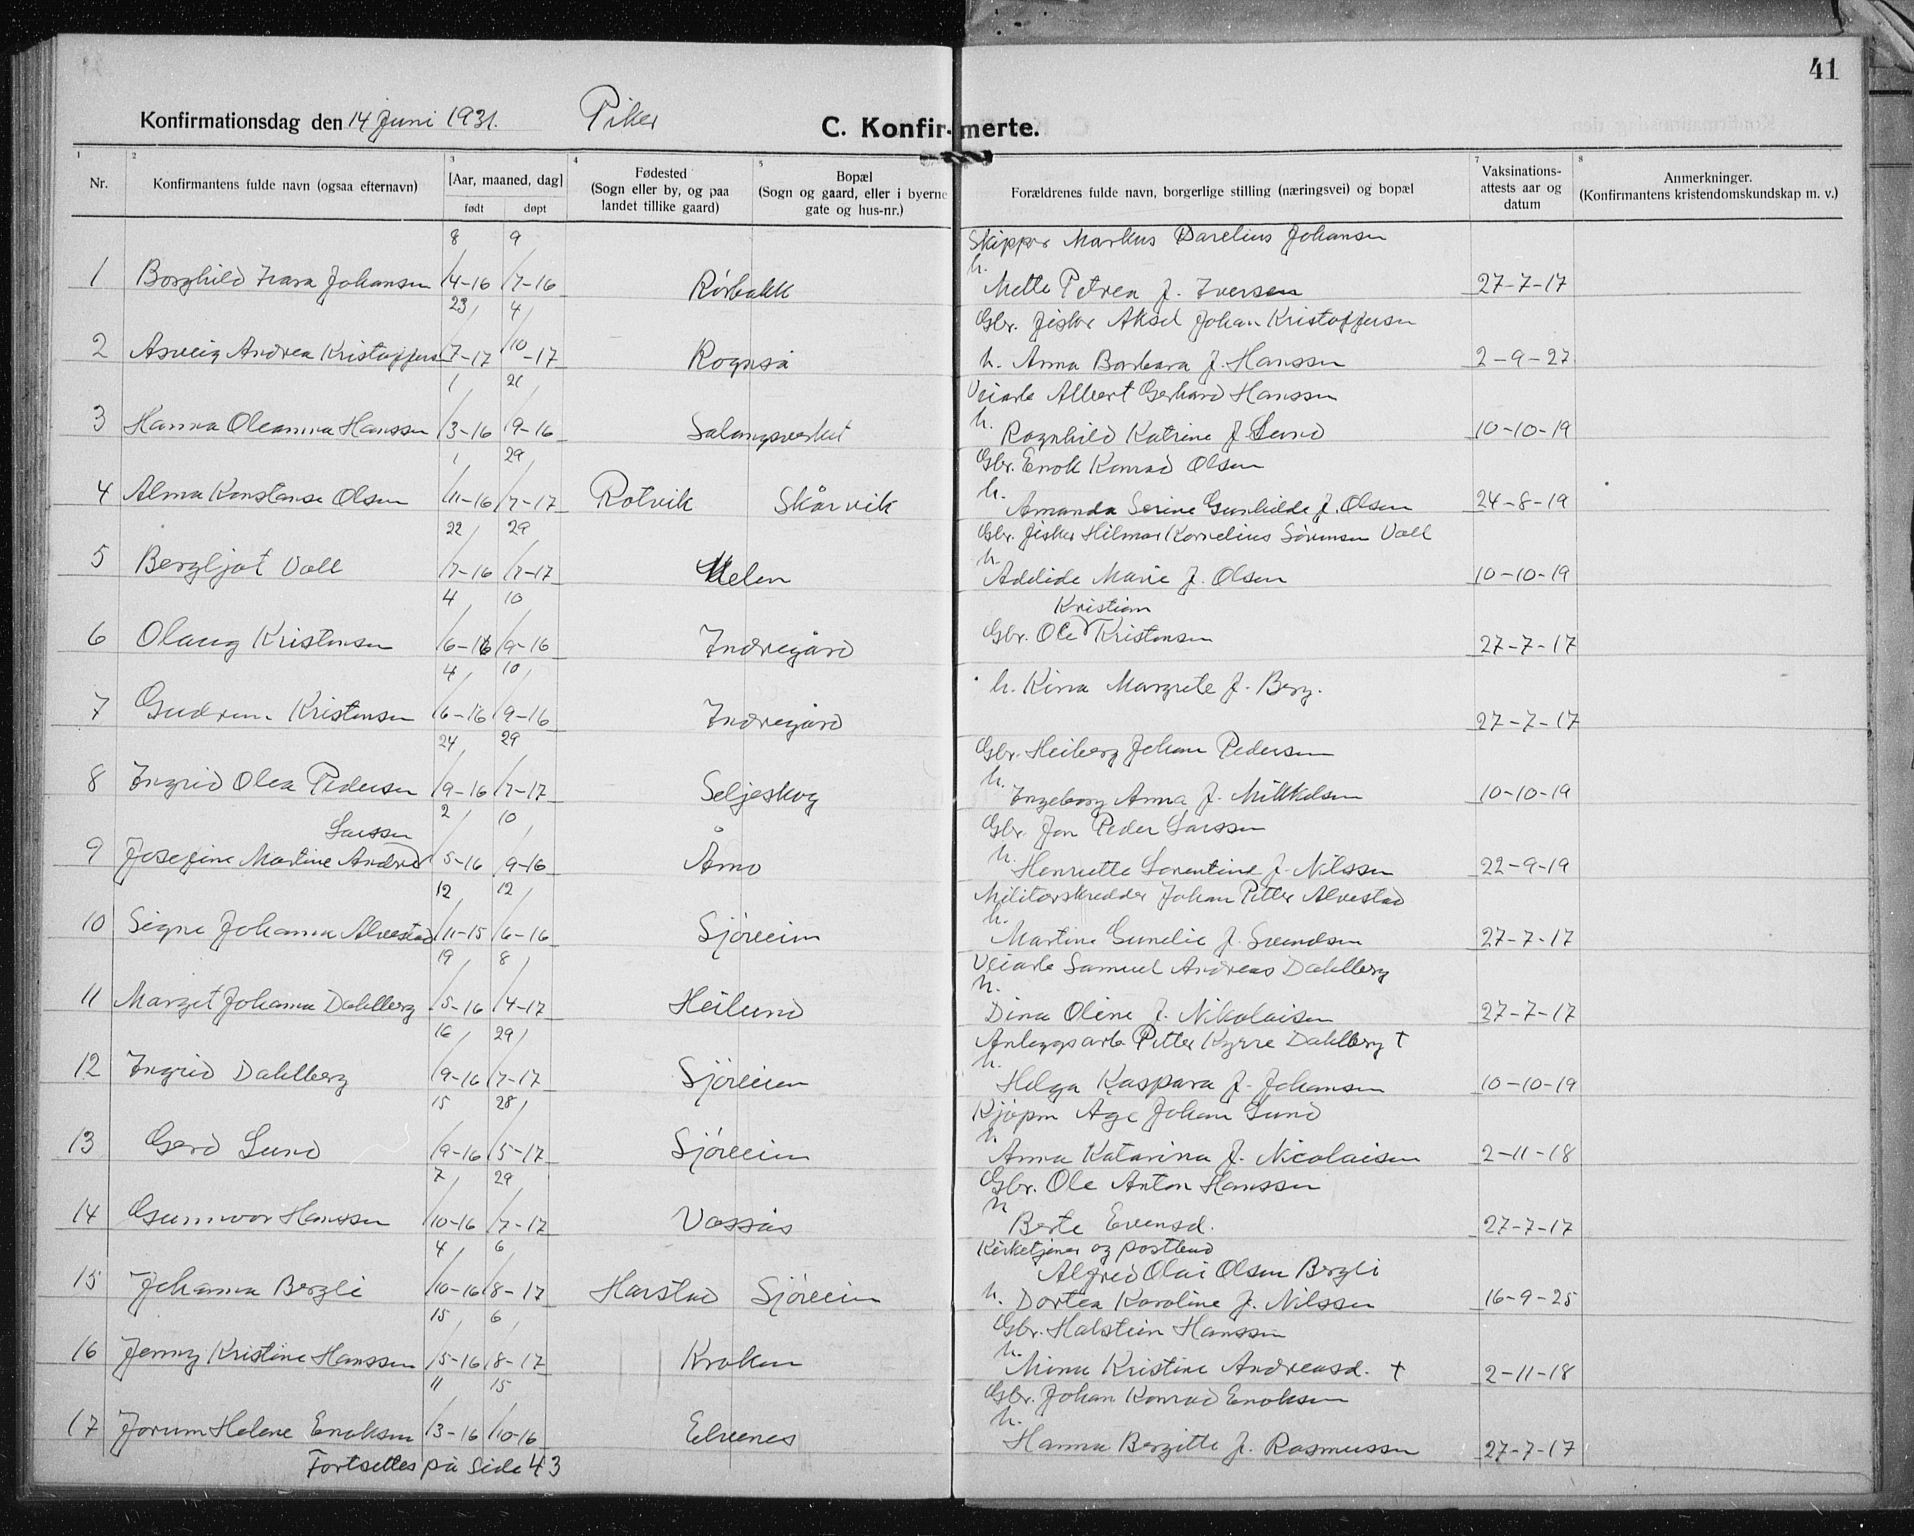 41
Konfirmationsdag den 14 Juni 1931. Piker
C. Konfirmerte.
1 2 3 4 5 7 8
Nr.
Konfirmantens fulde navn (ogsaa efternavn)
[Aar, maaned, dag]
født døpt
Fødested
(Sogn eller by, og paa
landet tillike gaard)
Bopæl
(Sogn og gaard, eller i byerne
gate og hus-nr.)
Forældrenes fulde navn, borgerlige stilling (næringsvei) og bopæl
Vaksinations-
attests aar og
datum
Anmerkninger.
(Konfirmantens kristendomskundskap m. v.)
8/ 9/ Skipper Markus Darelius Johansen
1 Borghild Johansen 4-16 7-16 Rørbakk h. Mette Petrea f. Iversen 27-7-17
23/ 4/ Gbr. fisker Aksel Johan Kristoffersen
2 Asveig Andrea Kristoffersen 7-17 10-17 Rognså h. Anna Barbara f. Hanssen 2-9-27
1/ 21/ Veiarb Albert Gerhard Hanssen
3 Hanna Oleanna Hanssen 3-16 9-16 Salangsverket h. Ragnhild Katrine f. Lund 10-10-19
1/ 29/ Gbr. Enok Konrad Olsen
4 Alma Konstanse Olsen 11-16 7-17 Rotvik Skårvik h. Amanda Serine Gunhilde f. Olsen 24-8-19
22/ 29/ Gbr. fisker Hilmar Kornelius Sørensen Voll
5 Bergljot Voll 7-16 7-17 Melen h. Adelide Marie f. Olsen 10-10-19
4/ 10/ Kristian
6 Olaug Kristensen 6-16 9-16 Indregård Gbr. Ole Kristensen 27-7-17
4/ 10/ h. Kina Margrete f. Berg.
7 Gudrun Kristensen 6-16 9-16 Indregård 27-7-17
24/ 29/ Gbr. Heiberg Johan Pedersen
8 Ingrid Olea Pedersen 9-16 7-17 Seljeskog h. Ingeborg Anna f. Mikkelsen 10-10-19
Larssen 2/ 10/ Gbr. Jon Peder Larssen
9 Josefine Martine Andrea 5-16 9-16 Årno h. Henriette Lorentine f. Nilssen 22-9-19
12/ 12/ Militærskredder Johan Petter Alvestad
10 Signe Johanna Alvestad 11-15 6-16 Sjøveien h. Martine Gunelie f. Svendsen 27-7-17
19/ 8/ Veiarb Samuel Andreas Dahlberg
11 Margit Johanna Dahlberg 5-16 4-17 Heilund h. Dina Oline f. Nikolaisen 27-7-17
16/ 29/ Anleggsarb Petter Kyrre Dahlberg †
12 Ingrid Dahlberg 9-16 7-17 Sjøveien h. Helga Kaspara f. Johansen 10-10-19
15/ 28/ Kjøpm Age Johan Lund
13 Gerd Lund 9-16 5-17 Sjøveien h. Anna Katarina f. Nicolaisen 2-11-18
7/ 29/ Gbr. Ole Anton Hanssen
14 Gunnvor Hanssen 10-16 7-17 Vassås h Berte Evensd. 27-7-17
4/ 6/ Kirketjener og postbud
Alfred Olai Olsen Bergli
15 Johanna Bergli 10-16 8-17 Harstad Sjøveien h. Dortea Karoline f. Nilssen 16-9-25
15/ 6/ Gbr. Halstein Hanssen
16 Jenny Kristine Hanssen 5-16 8-17 Kroken h. Mina Kristine Andreasd. † 2-11-18
11/ 15/ Gbr. Johan Konrad Enoksen
17 Jorunn Helene Enoksen 3-16 10-16 Elvenes h. Hanna Bergitte f. Rasmussen 27-7-17
Fortsettes på side 43